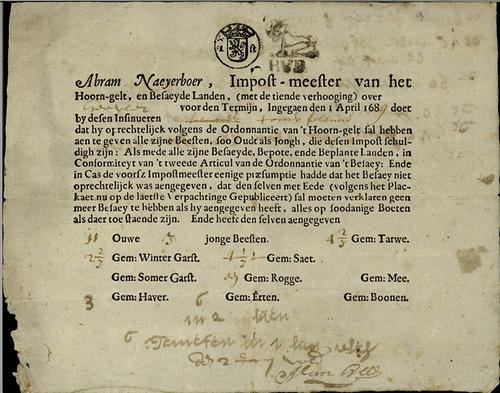 HVB
Abram Naeyerboer, Impost-meester van het
Hoorn-gelt, en Besaeyde Landen, (met de tiende verhooging) over
voor den Termijn, Ingegaen den 1 April 1689 doet
by desen Insinueren
dat hy oprechtelijck volgens de Ordonnantie van 't Hoorn-gelt sal hebben
aen te geven alle zijne Beesten, soo Oudt als Jongh, die desen Impost schul-
digh zijn: Als mede alle zijne Besaeyde, Bepote, ende Beplante Landen, in
Conformiteyt van 't tweede Articul van de Ordonnantie van 't Besaey: Ende
in Cas de voorsz Impostmeester eenige præsumptie hadde dat het Besaey niet
oprechtelijck was aengegeven, dat den selven met Eede (volgens het Plac-
kaet nu op de laetste Verpachtinge Gepubliceert) sal moeten verklaren geen
meer Besaey te hebben als hy aengegeven heeft, alles op soodanige Boeten
als daer toe staende zijn. Ende heeft den selven aengegeven
11 Ouwe 3 jonge Beesten. 4 2/3 Gem: Tarwe.
2 2/3 Gem: Winter Garst. Gem: Saet.
Gem: Somer Garst. Gem: Rogge. Gem: Mee.
3 Gem: Haver. 6 Gem: Erten. Gem: Boonen.
in 2
6